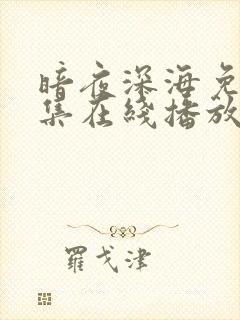 暗夜深海免
集在线播放
羅戈津